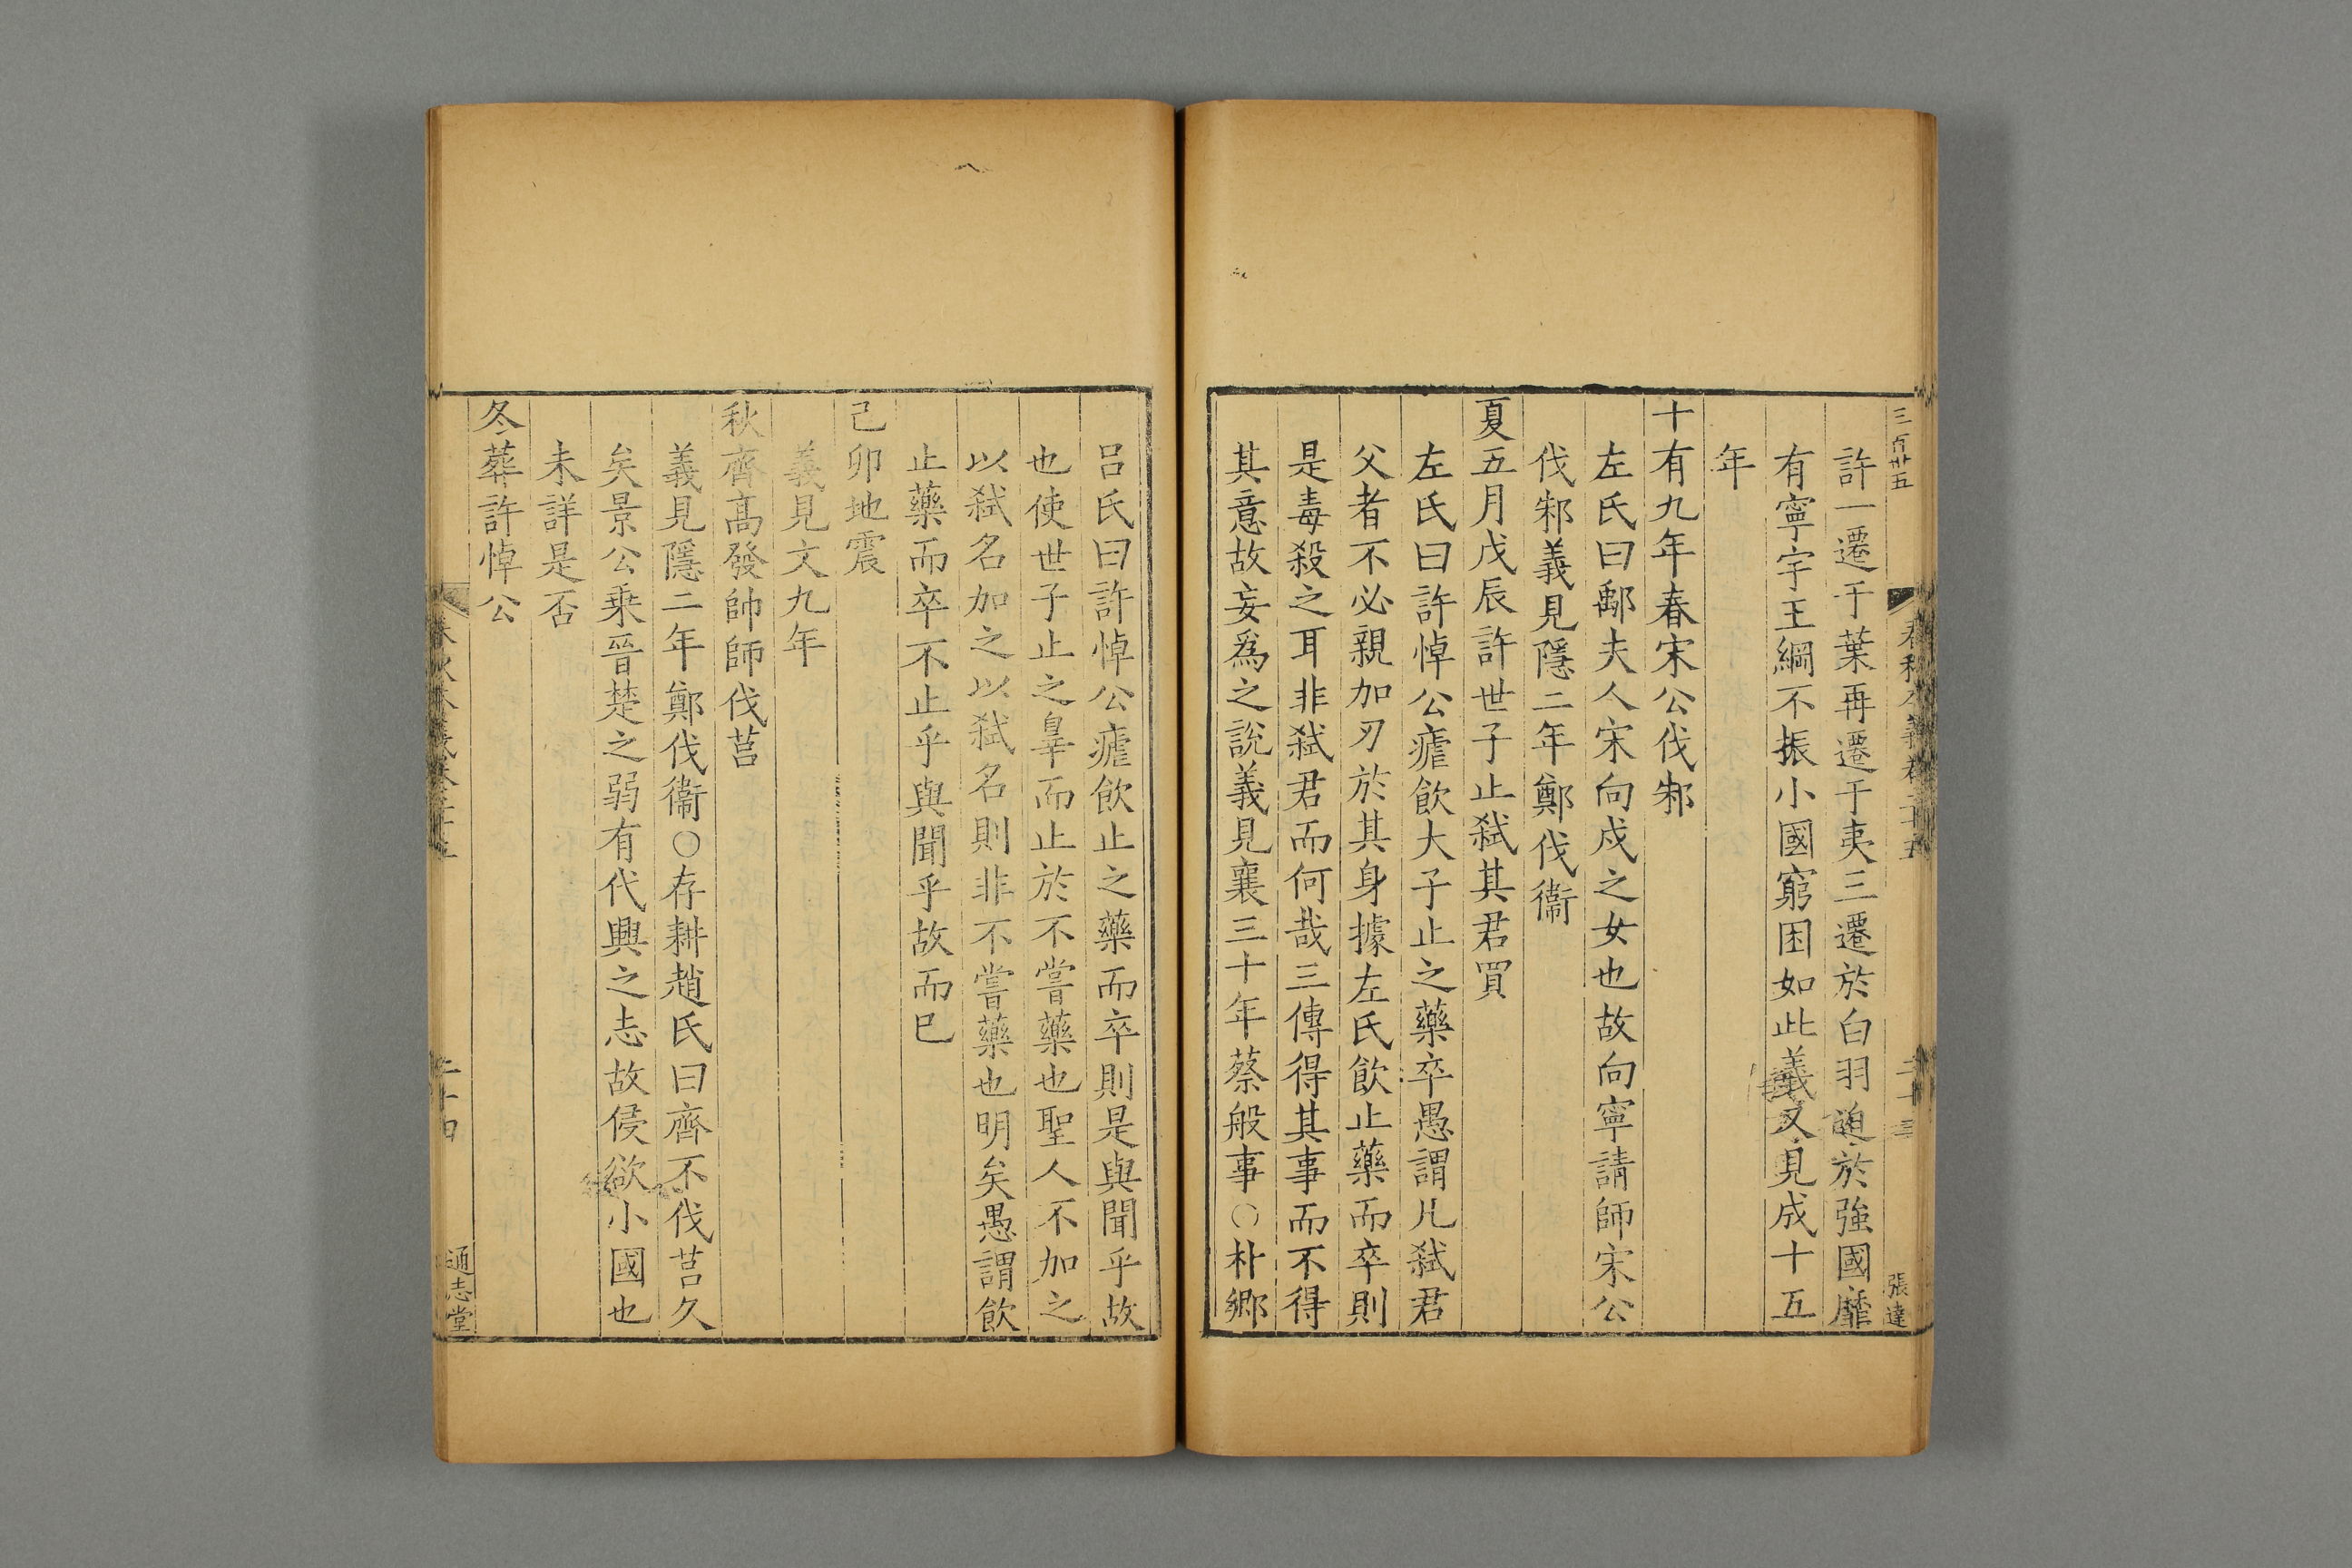 三百廿五
春秋本義卷二十五
二十三
張達
許一遷于葉再遷于夷三遷於白羽迫於強國靡
有寧宇王綱不振小國窮困如此義又見成十五
年
十有九年春宋公伐邾
左氏曰鄅夫人宋向戍之女也故向寧請師宋公
伐邾義見隱二年鄭伐衞
夏五月戊辰許世子止弒其君買
左氏曰許悼公瘧飲大子止之藥卒愚謂凡弒君
父者不必親加刃於其身據左氏飲止藥而卒則
是毒殺之耳非弒君而何哉三傳得其事而不得
其意故妄爲之說義見襄三十年蔡般事○朴鄉
呂氏曰許悼公瘧飲止之藥而卒則是與聞乎故
也使世子止之辠而止於不嘗藥也聖人不加之
以弒名加之以弒名則非不嘗藥也明矣愚謂飲
止藥而卒不止乎與聞乎故而已
己卯地震
義見文九年
秋齊高發帥師伐莒
義見隱二年鄭伐衞○存耕趙氏曰齊不伐莒久
矣景公乗晉楚之弱有代興之志故侵欲小國也
未詳是否
冬葬許悼公
春秋本義卷二十五
二十四
通志堂